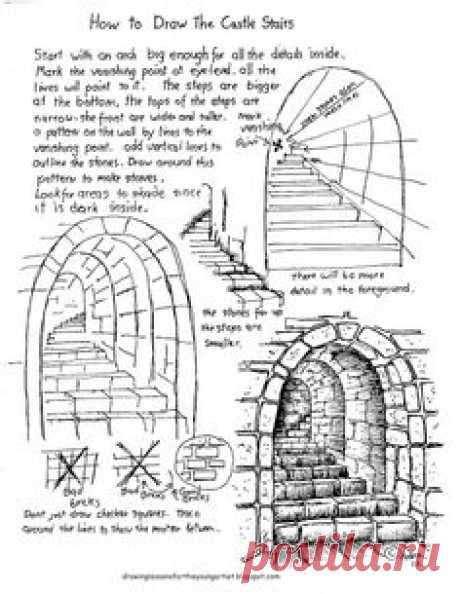 How to Draw The Castle Stairs
Start with an arch big enough for all the details inside.
Mark the vanishing point at eye level. all the
lines will point to it. The steps are bigger
at the bottom, the tops of the steps are
narrow - the front are wider and taller.
a pattern on the wall by lines to the
vanishing point. add vertical lines to
outline the stones. Draw around this
pattern to make stones.
Look for areas to shade since
it is dark inside.
mark
vanishing
Point
there will be more
detail in the foreground.
the stones far up
the steps are
smaller.
Bad
Bricks
Bad
Bricks
Good
Bricks
Dont just draw checker squares. Trace
around the lines to show the mortar between.
drawinglessonsfortheyoungartist.blogspot.com
postila.ru